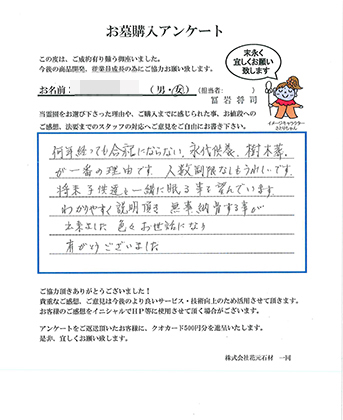 お墓購入アンケート
この度は、ご成約有り難う御座いました。
今後の商品開発、従業員成長の為にご協力お願い致します。
末永く
宜しくお願い
致します
お名前: (男・女) (担当者: 冨岩 将司
イメージキャラクター
さとりちゃん
当霊園をお選び下さった理由や、ご購入までに感じられた事、お値段への
ご感想、法要までのスタッフの対応へご意見をご自由にお書き下さい。
何年経っても合祀にならない、永代供養、樹木葬
が一番の理由です 人数制限なしもうれしいです
将来子供達も一緒に眠る事を望んでいます
わかりやすく説明頂き 無事納骨する事が
出来ました 色々お世話になり
有がとうございました
ご協力頂きありがとうございます!
貴重なご感想、ご意見は今後のより良いサービス・技術向上のため活用させて頂きます。
お客様のご感想をイニシャルでHP等に使用させて頂く場合がございます。
アンケートをご返送頂いたお客様に、クオカード500円分を進呈いたします。
是非、宜しくお願い致します。
株式会社花元石材 一同